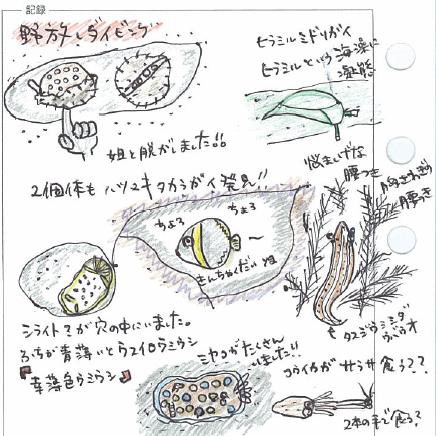 記録
野放しダイビング
ヒラミルミドリガイ
ヒラミルという海藻に
擬態
姐と脱がしました!!
2個体も ハツユキダカラガイ発見!!
悩ましげな
腰つき
ちょろ
ちょろ
きんちゃくだい
シライトウミウシが穴の中にいました。
ふちが青薄いとウスイロウミウシ
『幸薄色ウミウシ』
ミヤコがたくさん
いました!!
コウイカが
食う??
2本の手で食う?